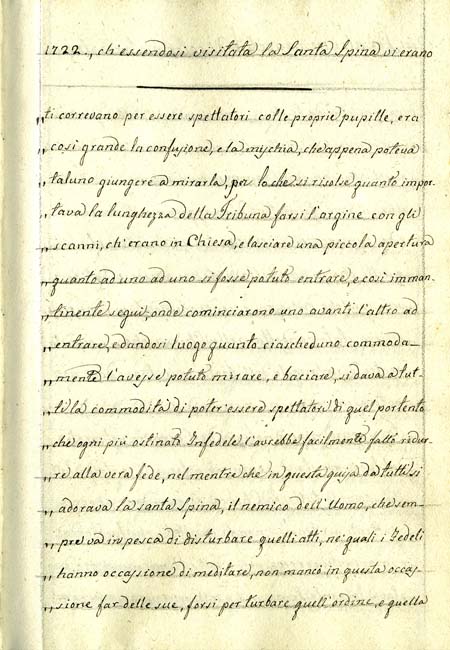 1722., ch'essendosi visitata la Santa Spina vi erano
„ ti correvano per essere spettatori colle proprie pupille, era
„ così grande la confusione, e la mischia, che appena poteva
„ taluno giungere à mirarla, per lo che si risolse quanto impor-
„ tava la lunghezza della Tribuna farsi l'argine con gli
„ scanni, ch'erano in Chiesa, e lasciare una piccola apertura
„ quanto ad uno ad uno si fosse potuto entrare, e così imman-
„ tinente seguì, onde cominciarono uno avanti l'altro ad
„ entrare, e dandosi luogo quanto ciascheduno commoda-
„ mente l'avesse potuto mirare, e baciare, si dava a tut-
„ ti la commodità di poter essere spettatori di quel portento
„ che ogni più ostinato Infedele l'avrebbe facilmente fatto redur-
„ re alla vera fede, nel mentre che in questa guisa da tutti si
„ adorava la santa Spina, il nemico dell'Uomo, che sem-
„ pre va in pesca di disturbare quelli atti, ne' quali i Fedeli
„ hanno occassione di meditare, non mancò in questa occas-
„ sione far delle sue, forsi per turbare quell'ordine, e quella